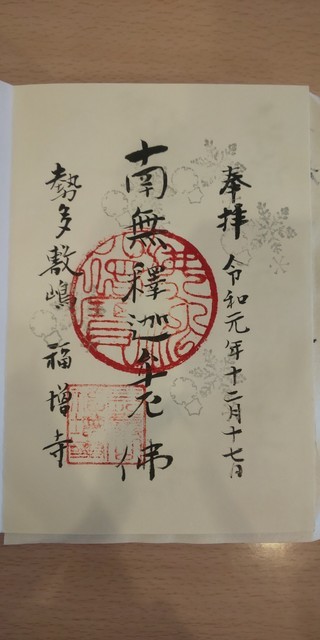 奉拝 令和元年十二月十七日
南無釋迦牟尼佛
勢多敷嶋 福増寺